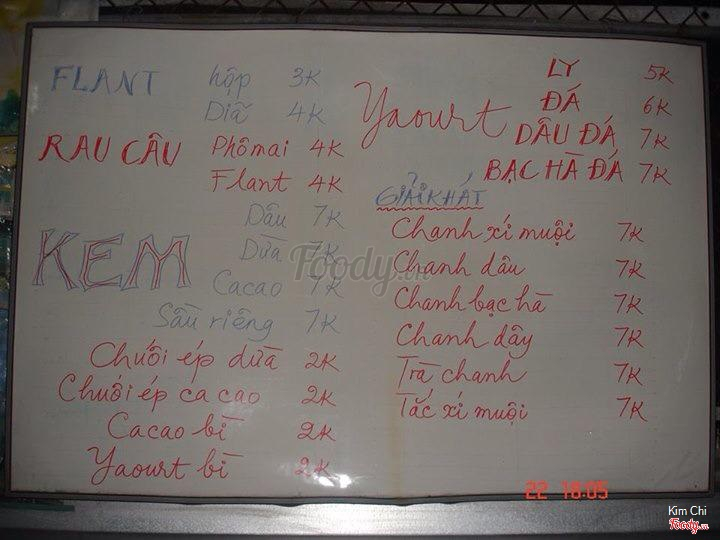 FLANT hộp 3K
Dĩa 4K
RAU CÂU Phômai 4K
Flant 4K
KEM
Dâu 7K
Dừa 7K
Cacao 7K
Sầu riêng 7K
Chuối ép dừa 2K
Chuối ép ca cao 2K
Cacao bì 2K
Yaourt bì 2K
Yaourt
LY 5K
ĐÁ 6K
DÂU ĐÁ 7K
BẠC HÀ ĐÁ 7K
GIẢI KHÁT
Chanh xí muội 7K
Chanh dâu 7K
Chanh bạc hà 7K
Chanh dây 7K
Trà chanh 7K
Tắc xí muội 7K
Foody.vn
22 18:05
Kim Chi
Foody.vn